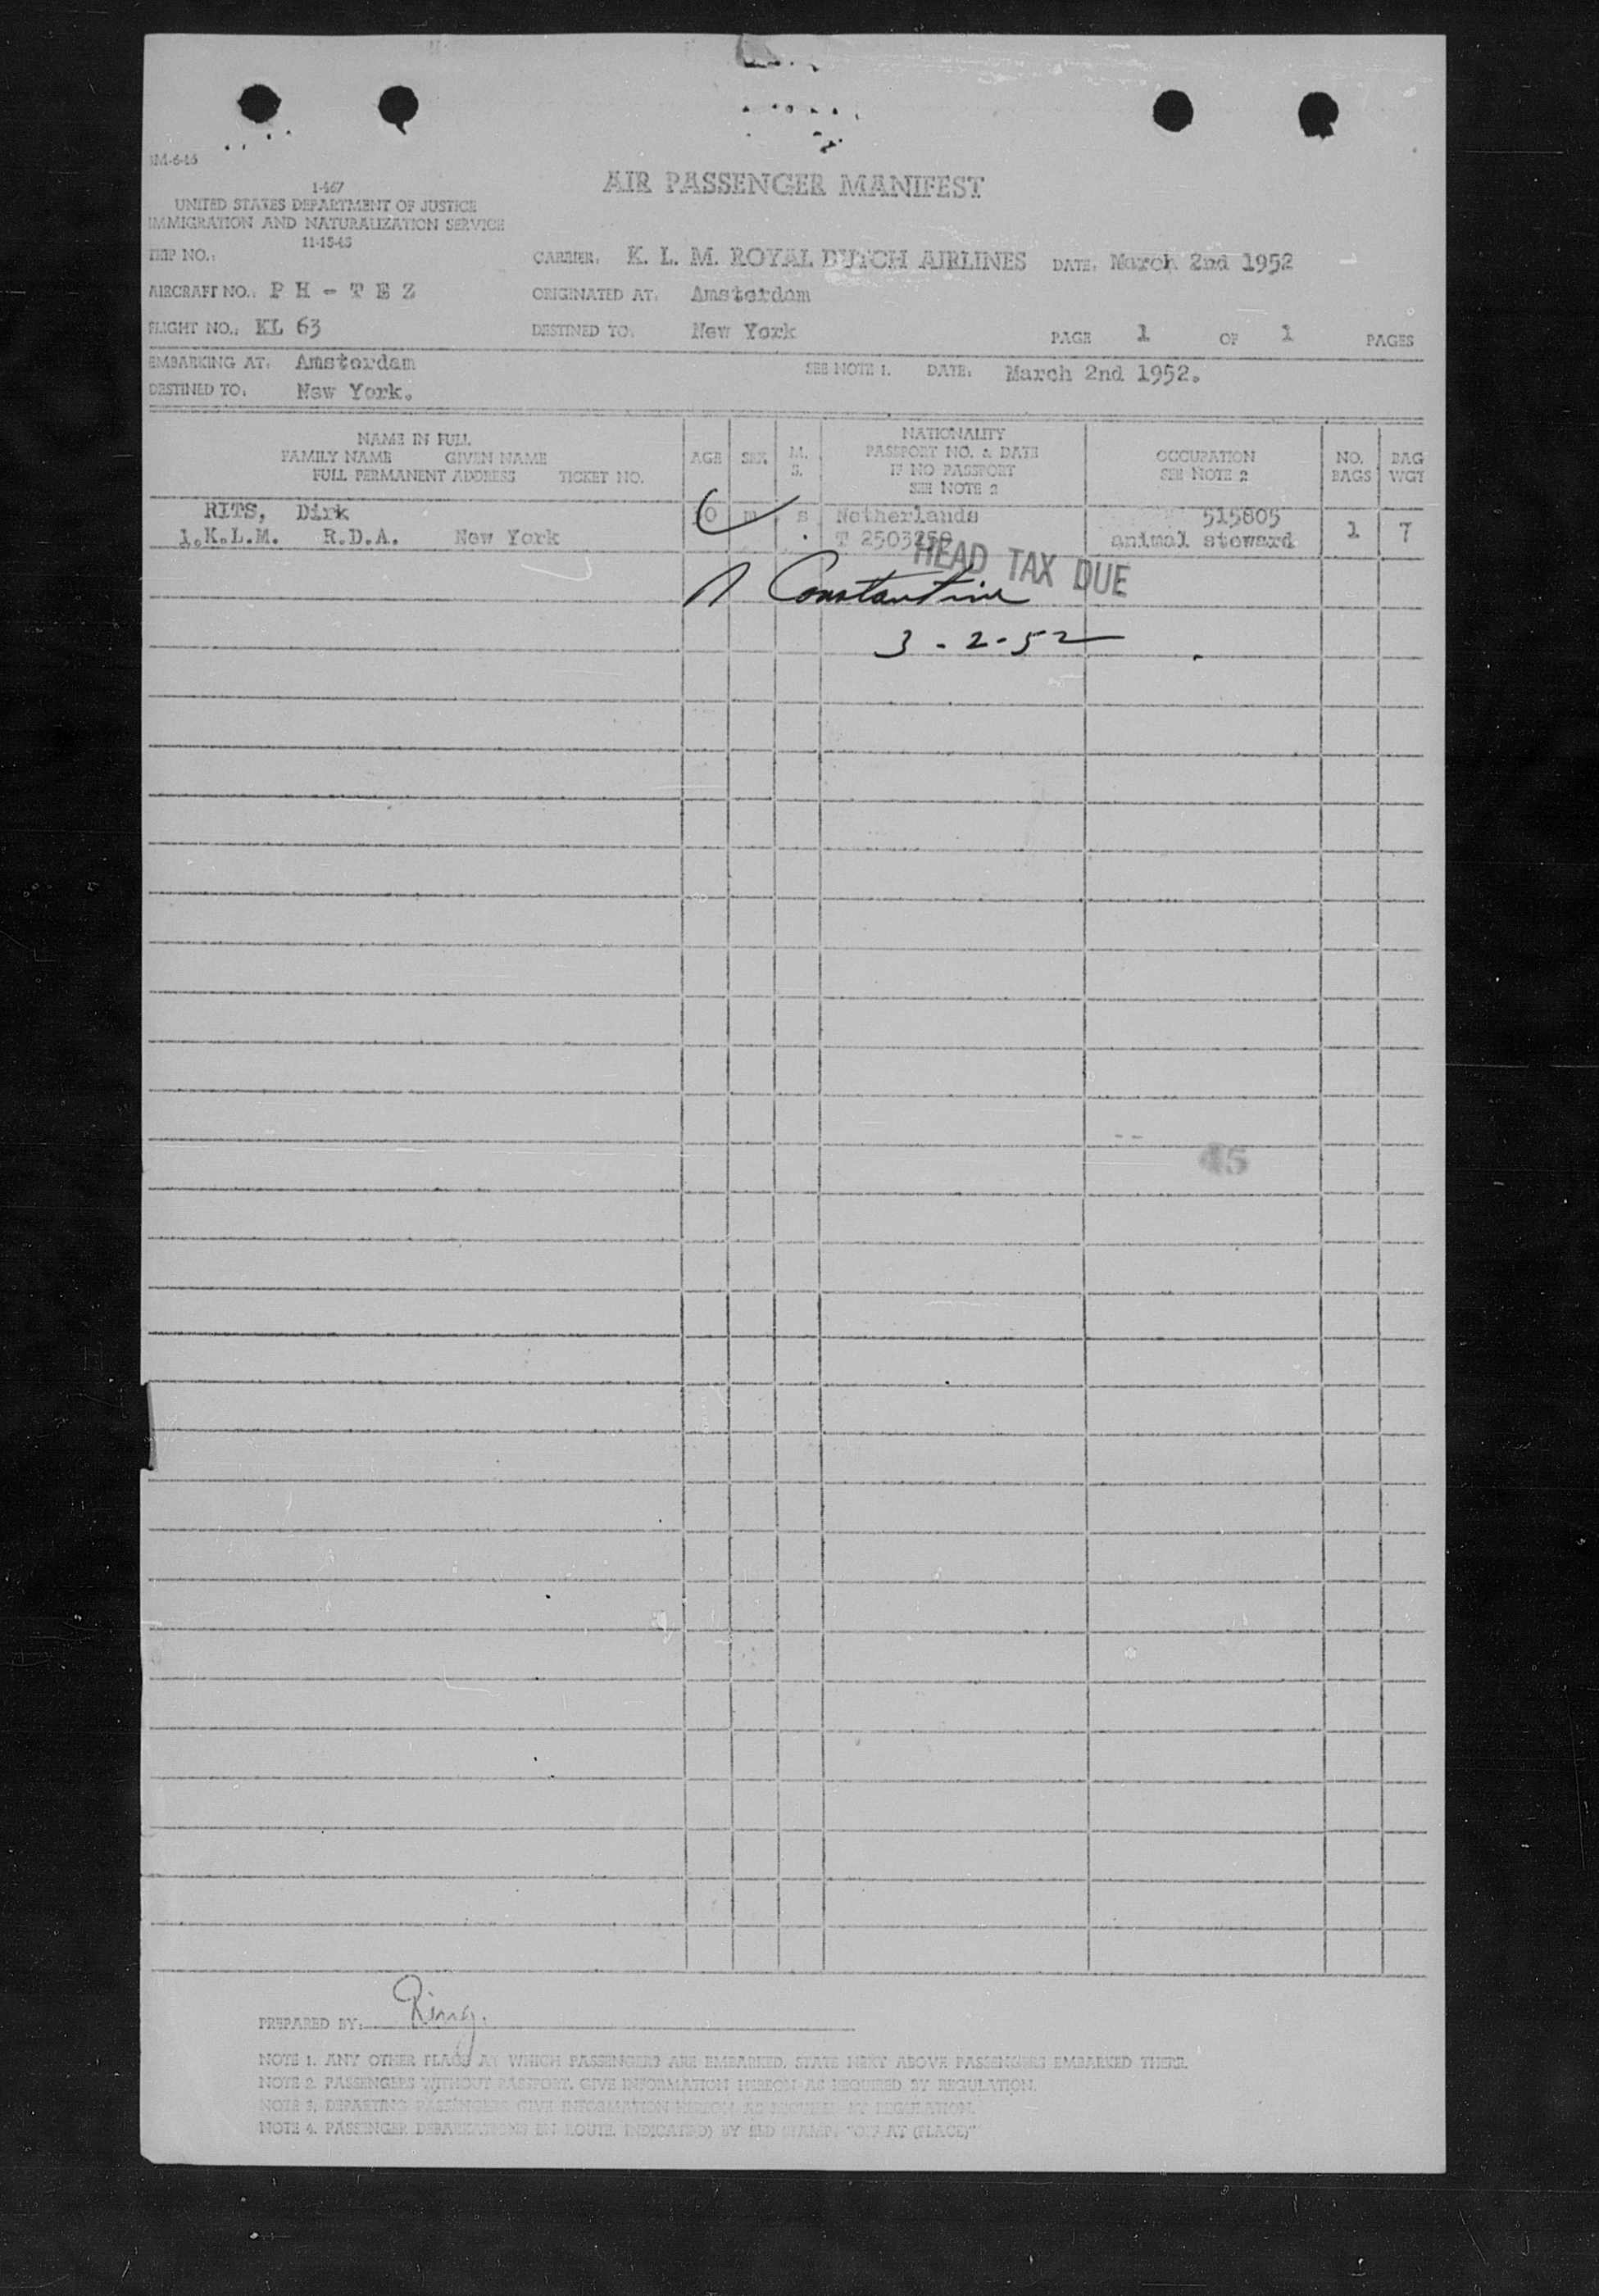 1-467
AIR PASSENGER MANIFEST
UNITED STATES DEPARTMENT OF JUSTICE
IMMIGRATION AND NATURALIZATION SERVICE
11-15-45
TRIP NO.: CARRIER: K. L. M. ROYAL DUTCH AIRLINES DATE: March 2nd 1952
AIRCRAFT NO.: P H - T E Z ORIGINATED AT: Amsterdam
FLIGHT NO.: KL 63 DESTINED TO: New York PAGE 1 OF 1 PAGES
EMBARKING AT: Amsterdam SEE NOTE 1. DATE: March 2nd 1952.
DESTINED TO: New York.
NAME IN FULL
FAMILY NAME GIVEN NAME
FULL PERMANENT ADDRESS TICKET NO.
AGE
SEX
M.
S.
NATIONALITY
PASSPORT NO. & DATE
IF NO PASSPORT
SEE NOTE 2
OCCUPATION
SEE NOTE 2
NO.
BAGS
BAG
WGT
RITS, Dirk m s Netherlands 515805
1.K.L.M. R.D.A. New York T 2503258 animal steward 1 7
HEAD TAX DUE
Constantine
3-2-52
45
PREPARED BY: Ring.
NOTE 1. ANY OTHER PLACE AT WHICH PASSENGERS ARE EMBARKED, STATE NEXT ABOVE PASSENGERS EMBARKED THERE.
NOTE 2. PASSENGERS WITHOUT PASSPORT, GIVE INFORMATION HEREON AS REQUIRED BY REGULATION.
NOTE 3. DEPARTING PASSENGERS GIVE INFORMATION HEREON AS REQUIRED BY REGULATION.
NOTE 4. PASSENGER DEBARKATIONS EN ROUTE INDICATED BY RED STAMP: "OFF AT (PLACE)"